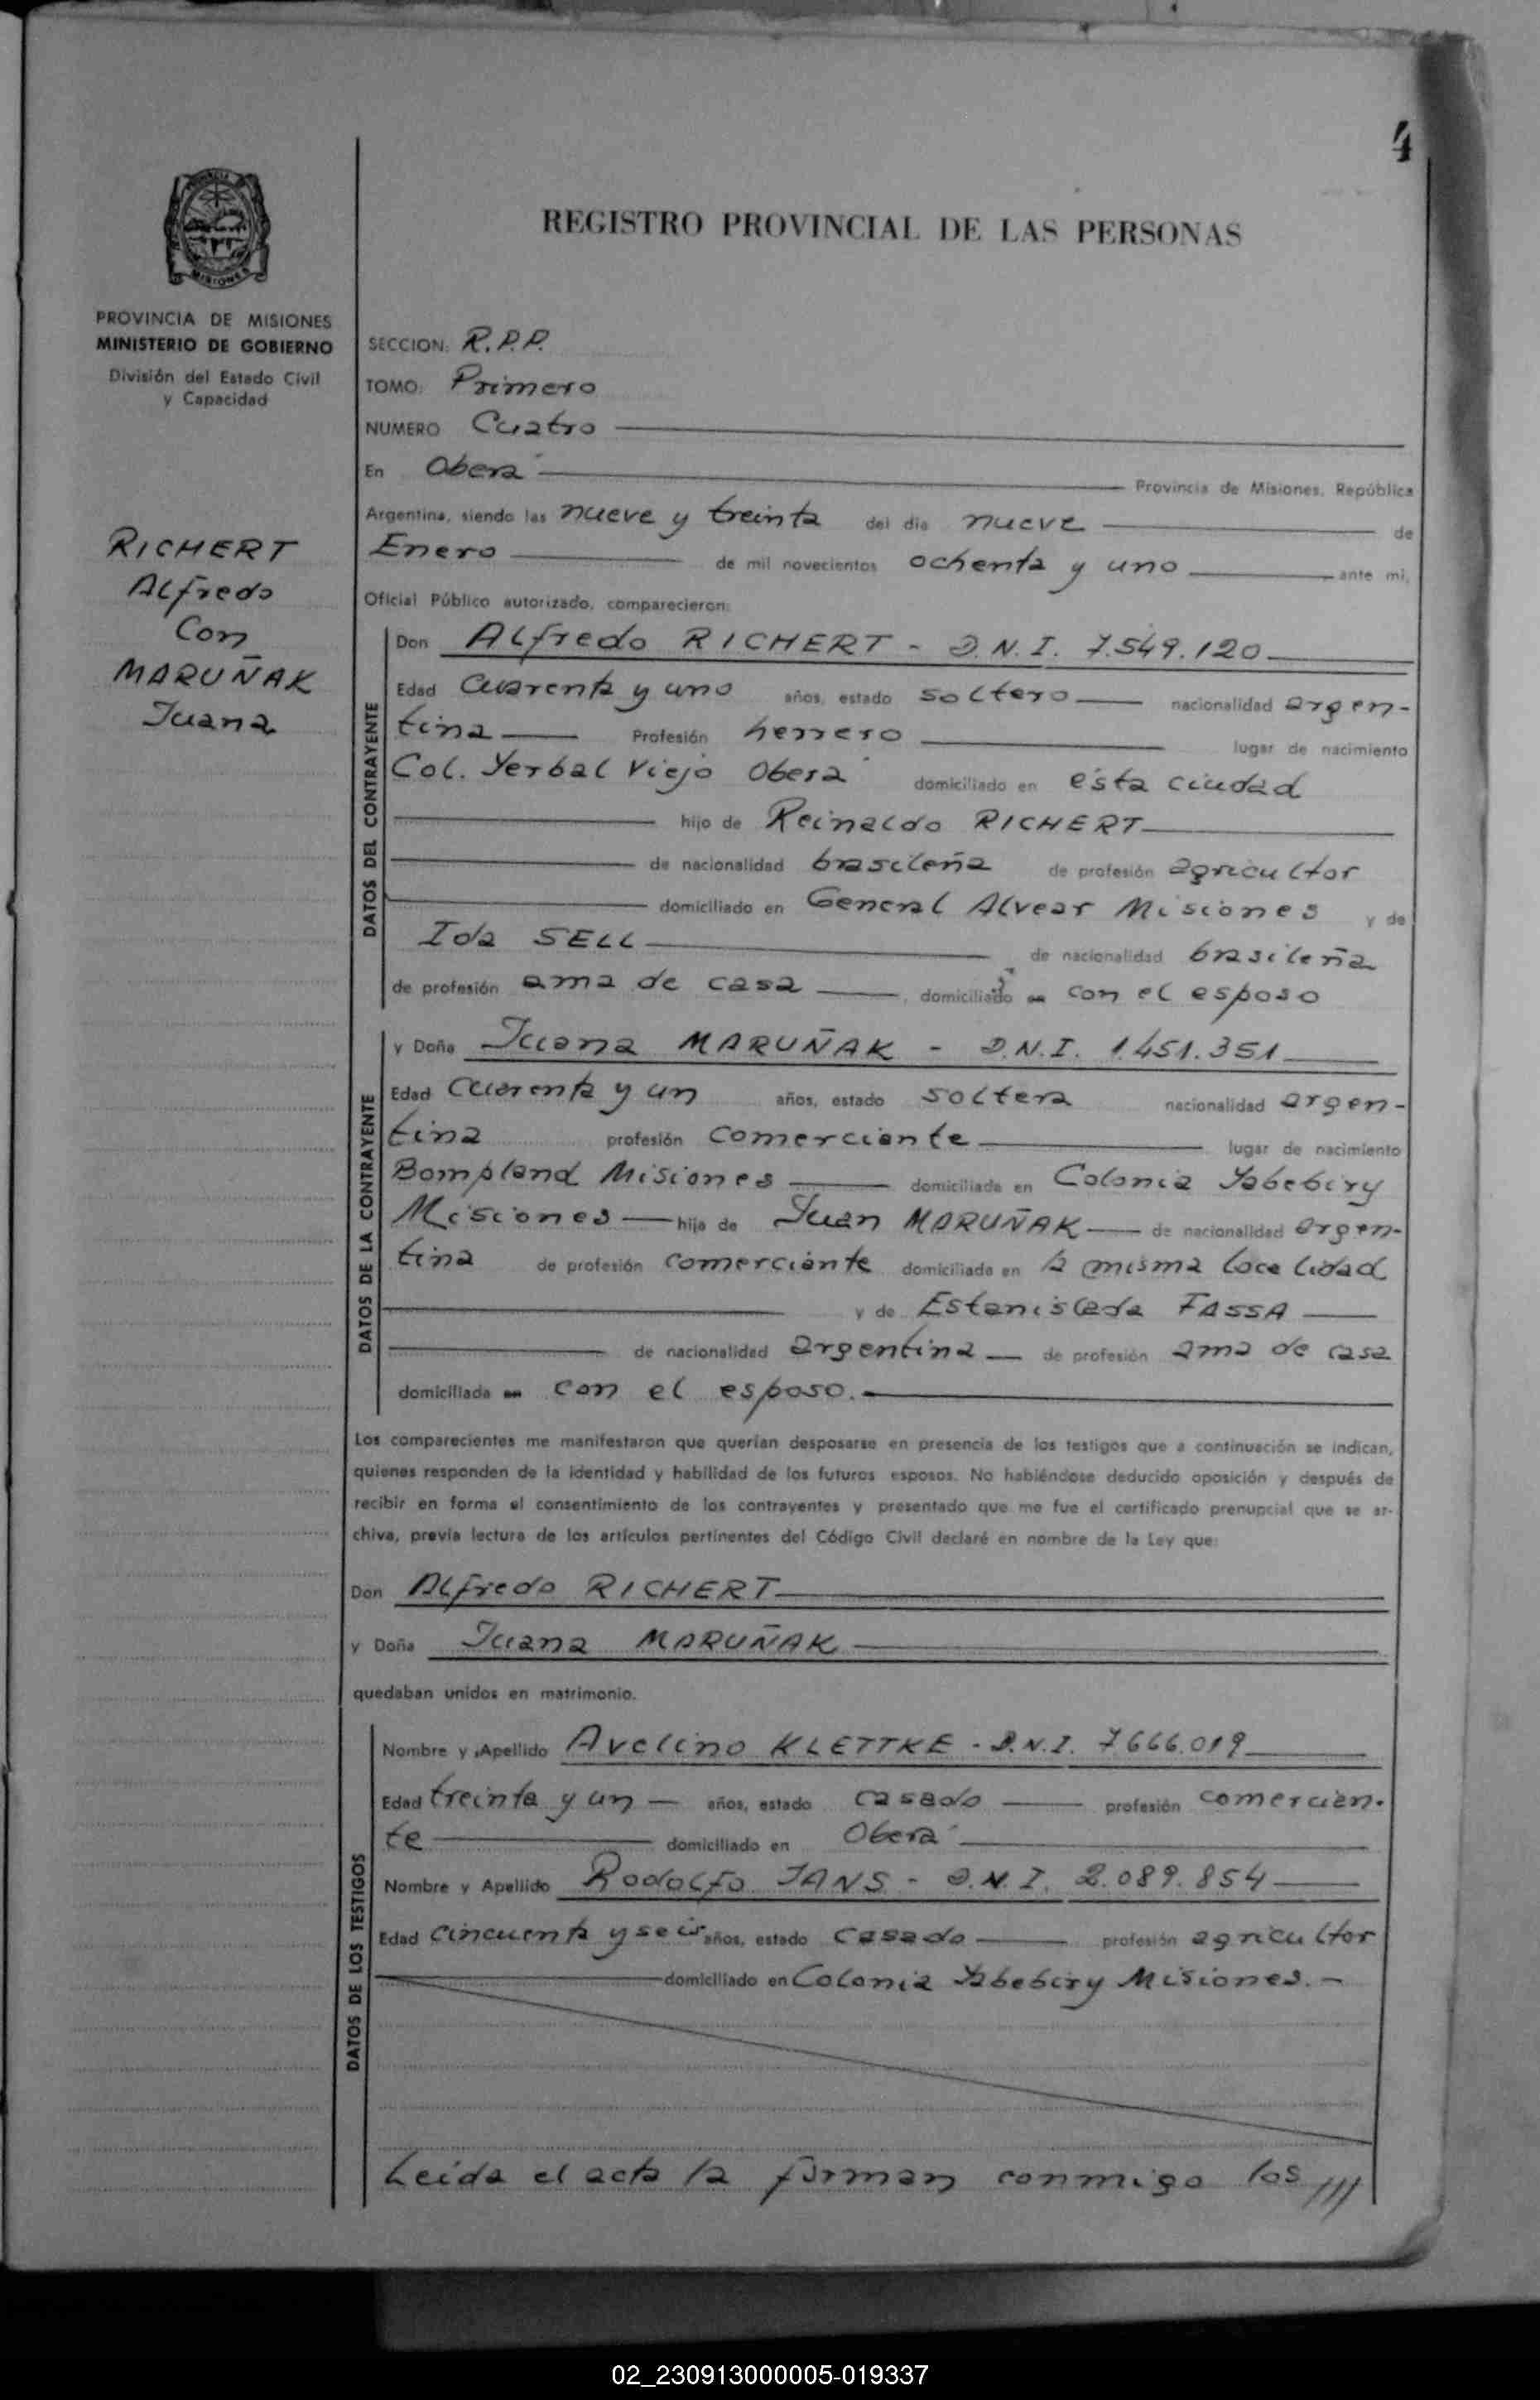 4
REGISTRO PROVINCIAL DE LAS PERSONAS
PROVINCIA DE MISIONES
MINISTERIO DE GOBIERNO
División del Estado Civil
y Capacidad
RICHERT
Alfredo
Con
MARUÑAK
Juana
SECCION: R.P.P.
TOMO: Primero
NUMERO Cuatro
En Oberá Provincia de Misiones, República
Argentina, siendo las nueve y treinta del día nueve de
Enero de mil novecientos ochenta y uno ante mi,
Oficial Público autorizado, comparecieron:
DATOS DEL CONTRAYENTE
Don Alfredo RICHERT - D.N.I. 7.549.120
Edad Cuarenta y uno años, estado soltero nacionalidad argen-
tina Profesión herrero lugar de nacimiento
Col. Yerbal Viejo Oberá domiciliado en ésta ciudad
hijo de Reinaldo RICHERT
de nacionalidad brasileña de profesión agricultor
domiciliado en General Alvear Misiones y de
Ida SELL de nacionalidad brasileña
de profesión ama de casa, domiciliado con el esposo
DATOS DE LA CONTRAYENTE
y Doña Juana MARUÑAK - D.N.I. 1.451.351
Edad Cuarenta y un años, estado soltera nacionalidad argen-
tina profesión Comerciante lugar de nacimiento
Bompland Misiones domiciliada en Colonia Yabebiry
Misiones hija de Juan MARUÑAK de nacionalidad argen-
tina de profesión comerciante domiciliado en la misma localidad
y de Estanislada FASSA
de nacionalidad argentina de profesión ama de casa
domiciliada en con el esposo.
Los comparecientes me manifestaron que querían desposarse en presencia de los testigos que a continuación se indican,
quienes responden de la identidad y habilidad de los futuros esposos. No habiéndose deducido oposición y después de
recibir en forma el consentimiento de los contrayentes y presentado que me fue el certificado prenupcial que se ar-
chiva, previa lectura de los artículos pertinentes del Código Civil declaré en nombre de la Ley que:
Don Alfredo RICHERT
y Doña Juana MARUÑAK
quedaban unidos en matrimonio.
DATOS DE LOS TESTIGOS
Nombre y Apellido Avelino KLETTKE - D.N.I. 7666.019
Edad treinta y un años, estado casado profesión comercian-
te domiciliado en Oberá
Nombre y Apellido Rodolfo JANS - D.N.I. 2.089.854
Edad cincuenta y seis años, estado casado profesión agricultor
domiciliado en Colonia Yabebiry Misiones. -
Leída el acta la firman conmigo los ///
02_230913000005-019337